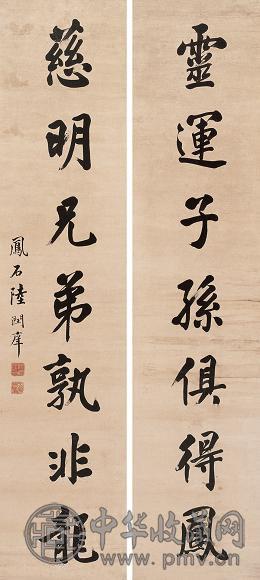 靈運子孫俱得鳳
慈明兄弟孰非龍
鳳石陸潤庠
中华收藏网
www.pmv.cn